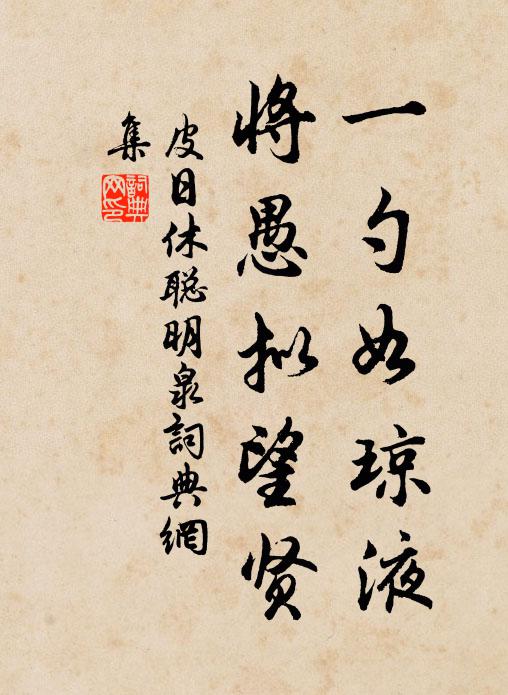 一勺如琼液
将愚拟望贤
皮日休聪明泉詞典網
集
詞典
网印